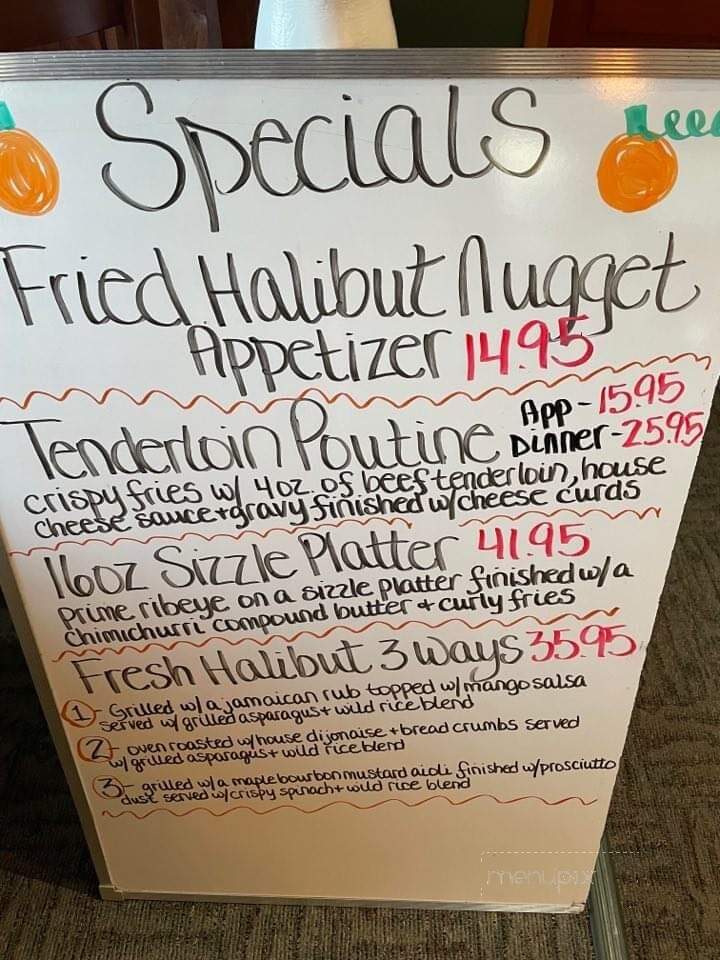 Specials
Fried Halibut Nugget
Appetizer 14.95
Tenderloin Poutine App - 15.95
Dinner - 25.95
crispy fries w/ 4oz. of beef tenderloin, house
cheese sauce + gravy finished w/cheese curds
16oz Sizzle Platter 41.95
prime ribeye on a sizzle platter finished w/a
chimichurri compound butter + curly fries
Fresh Halibut 3 ways 35.95
1 - Grilled w/a jamaican rub topped w/mango salsa
served w/ grilled asparagus + wild rice blend
2 - oven roasted w/house dijonaise + bread crumbs served
w/ grilled asparagus + wild rice blend
3 - grilled w/a maple bourbon mustard aioli finished w/prosciutto
dust served w/crispy spinach + wild rice blend
menupix